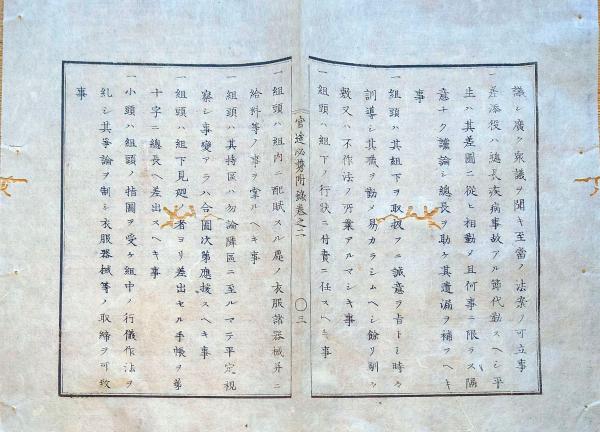 議シ廣ク衆議ヲ聞キ至當ノ法案ノ可立事
一差添役ハ總長疾病事故アル節代勤スヘシ平
生ハ其差圖ニ從ヒ相勤メ且何事ニ限ラス隔
意ナク議論シ總長ヲ助ケ其遺漏ヲ補フヘキ
事
一組頭ハ其組下ヲ取扱フニ誠意ヲ旨トシ時々
訓導シ其職ヲ勤メ易カラシムヘシ餘リ馴々
敷又ハ不作法ノ所業アルマシキ事
一組頭ハ組下ノ行狀ニ付責ニ任スヘキ事
官途必携附錄卷之二
〇三
一組頭ハ組内ニ配賦スル處ノ衣服諸器械并ニ
給料等ノ事ヲ掌ルヘキ事
一組頭ハ其持區ハ勿論隣區ニ至ルマテ平定視
察シ事變アラハ合圖次第應援スヘキ事
一組頭ハ組下見廻ノ者ヨリ差出セル手帳ヲ第
十字ニ總長ヘ差出スヘキ事
一小頭ハ組頭ノ指圖ヲ受ケ組中ノ行儀作法ヲ
糺シ其爭論ヲ制シ衣服器械等ノ取締ヲ可致
事